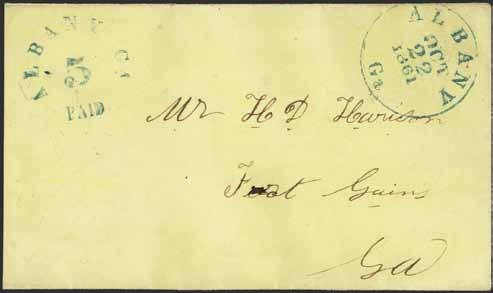 ALBANY Ga
5
PAID
ALBANY
OCT
22
1861
Ga
Mr H D Harison
Fort Gains
Ga